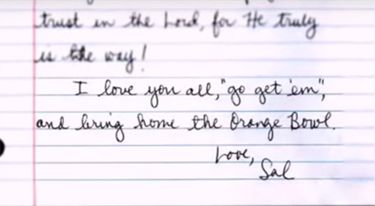 trust in the Lord, for He truly
is the way!
I love you all, "go get 'em",
and bring home the Orange Bowl.
Love,
Sal